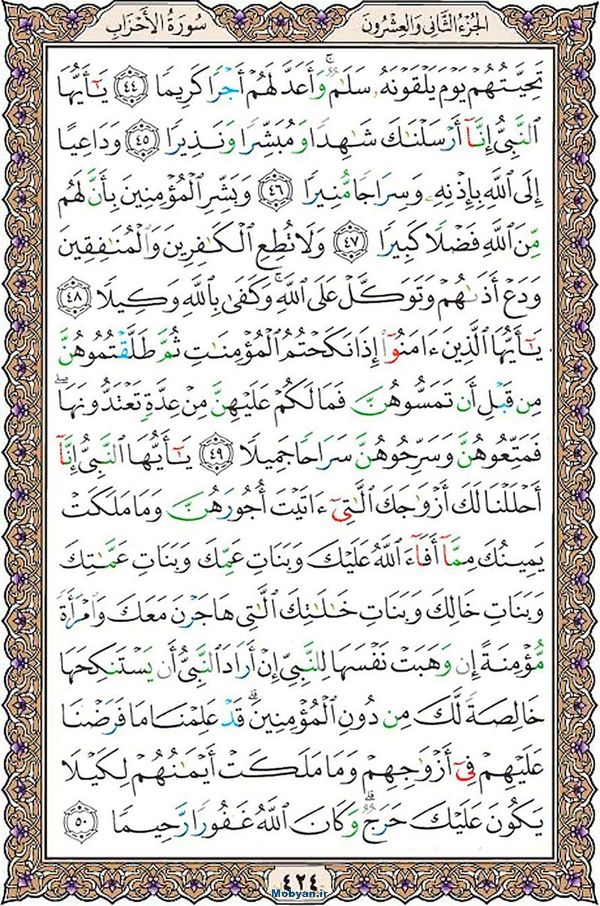 الجزء الثاني والعشرون سورة الأحزاب
تَحِيَّتُهُمْ يَوْمَ يَلْقَوْنَهُۥ سَلَٰمٌۚ وَأَعَدَّ لَهُمْ أَجْرًا كَرِيمًا ٤٤ يَٰٓأَيُّهَا
ٱلنَّبِىُّ إِنَّآ أَرْسَلْنَٰكَ شَٰهِدًا وَمُبَشِّرًا وَنَذِيرًا ٤٥ وَدَاعِيًا
إِلَى ٱللَّهِ بِإِذْنِهِۦ وَسِرَاجًا مُّنِيرًا ٤٦ وَبَشِّرِ ٱلْمُؤْمِنِينَ بِأَنَّ لَهُم
مِّنَ ٱللَّهِ فَضْلًا كَبِيرًا ٤٧ وَلَا تُطِعِ ٱلْكَٰفِرِينَ وَٱلْمُنَٰفِقِينَ
وَدَعْ أَذَىٰهُمْ وَتَوَكَّلْ عَلَى ٱللَّهِۚ وَكَفَىٰ بِٱللَّهِ وَكِيلًا ٤٨
يَٰٓأَيُّهَا ٱلَّذِينَ ءَامَنُوٓا۟ إِذَا نَكَحْتُمُ ٱلْمُؤْمِنَٰتِ ثُمَّ طَلَّقْتُمُوهُنَّ
مِن قَبْلِ أَن تَمَسُّوهُنَّ فَمَا لَكُمْ عَلَيْهِنَّ مِنْ عِدَّةٍ تَعْتَدُّونَهَاۖ
فَمَتِّعُوهُنَّ وَسَرِّحُوهُنَّ سَرَاحًا جَمِيلًا ٤٩ يَٰٓأَيُّهَا ٱلنَّبِىُّ إِنَّآ
أَحْلَلْنَا لَكَ أَزْوَٰجَكَ ٱلَّٰتِىٓ ءَاتَيْتَ أُجُورَهُنَّ وَمَا مَلَكَتْ
يَمِينُكَ مِمَّآ أَفَآءَ ٱللَّهُ عَلَيْكَ وَبَنَاتِ عَمِّكَ وَبَنَاتِ عَمَّٰتِكَ
وَبَنَاتِ خَالِكَ وَبَنَاتِ خَٰلَٰتِكَ ٱلَّٰتِى هَاجَرْنَ مَعَكَ وَٱمْرَأَةً
مُّؤْمِنَةً إِن وَهَبَتْ نَفْسَهَا لِلنَّبِىِّ إِنْ أَرَادَ ٱلنَّبِىُّ أَن يَسْتَنكِحَهَا
خَالِصَةً لَّكَ مِن دُونِ ٱلْمُؤْمِنِينَۗ قَدْ عَلِمْنَا مَا فَرَضْنَا
عَلَيْهِمْ فِىٓ أَزْوَٰجِهِمْ وَمَا مَلَكَتْ أَيْمَٰنُهُمْ لِكَيْلَا
يَكُونَ عَلَيْكَ حَرَجٌۗ وَكَانَ ٱللَّهُ غَفُورًا رَّحِيمًا ٥٠
٤٢٤
Mobyan.ir